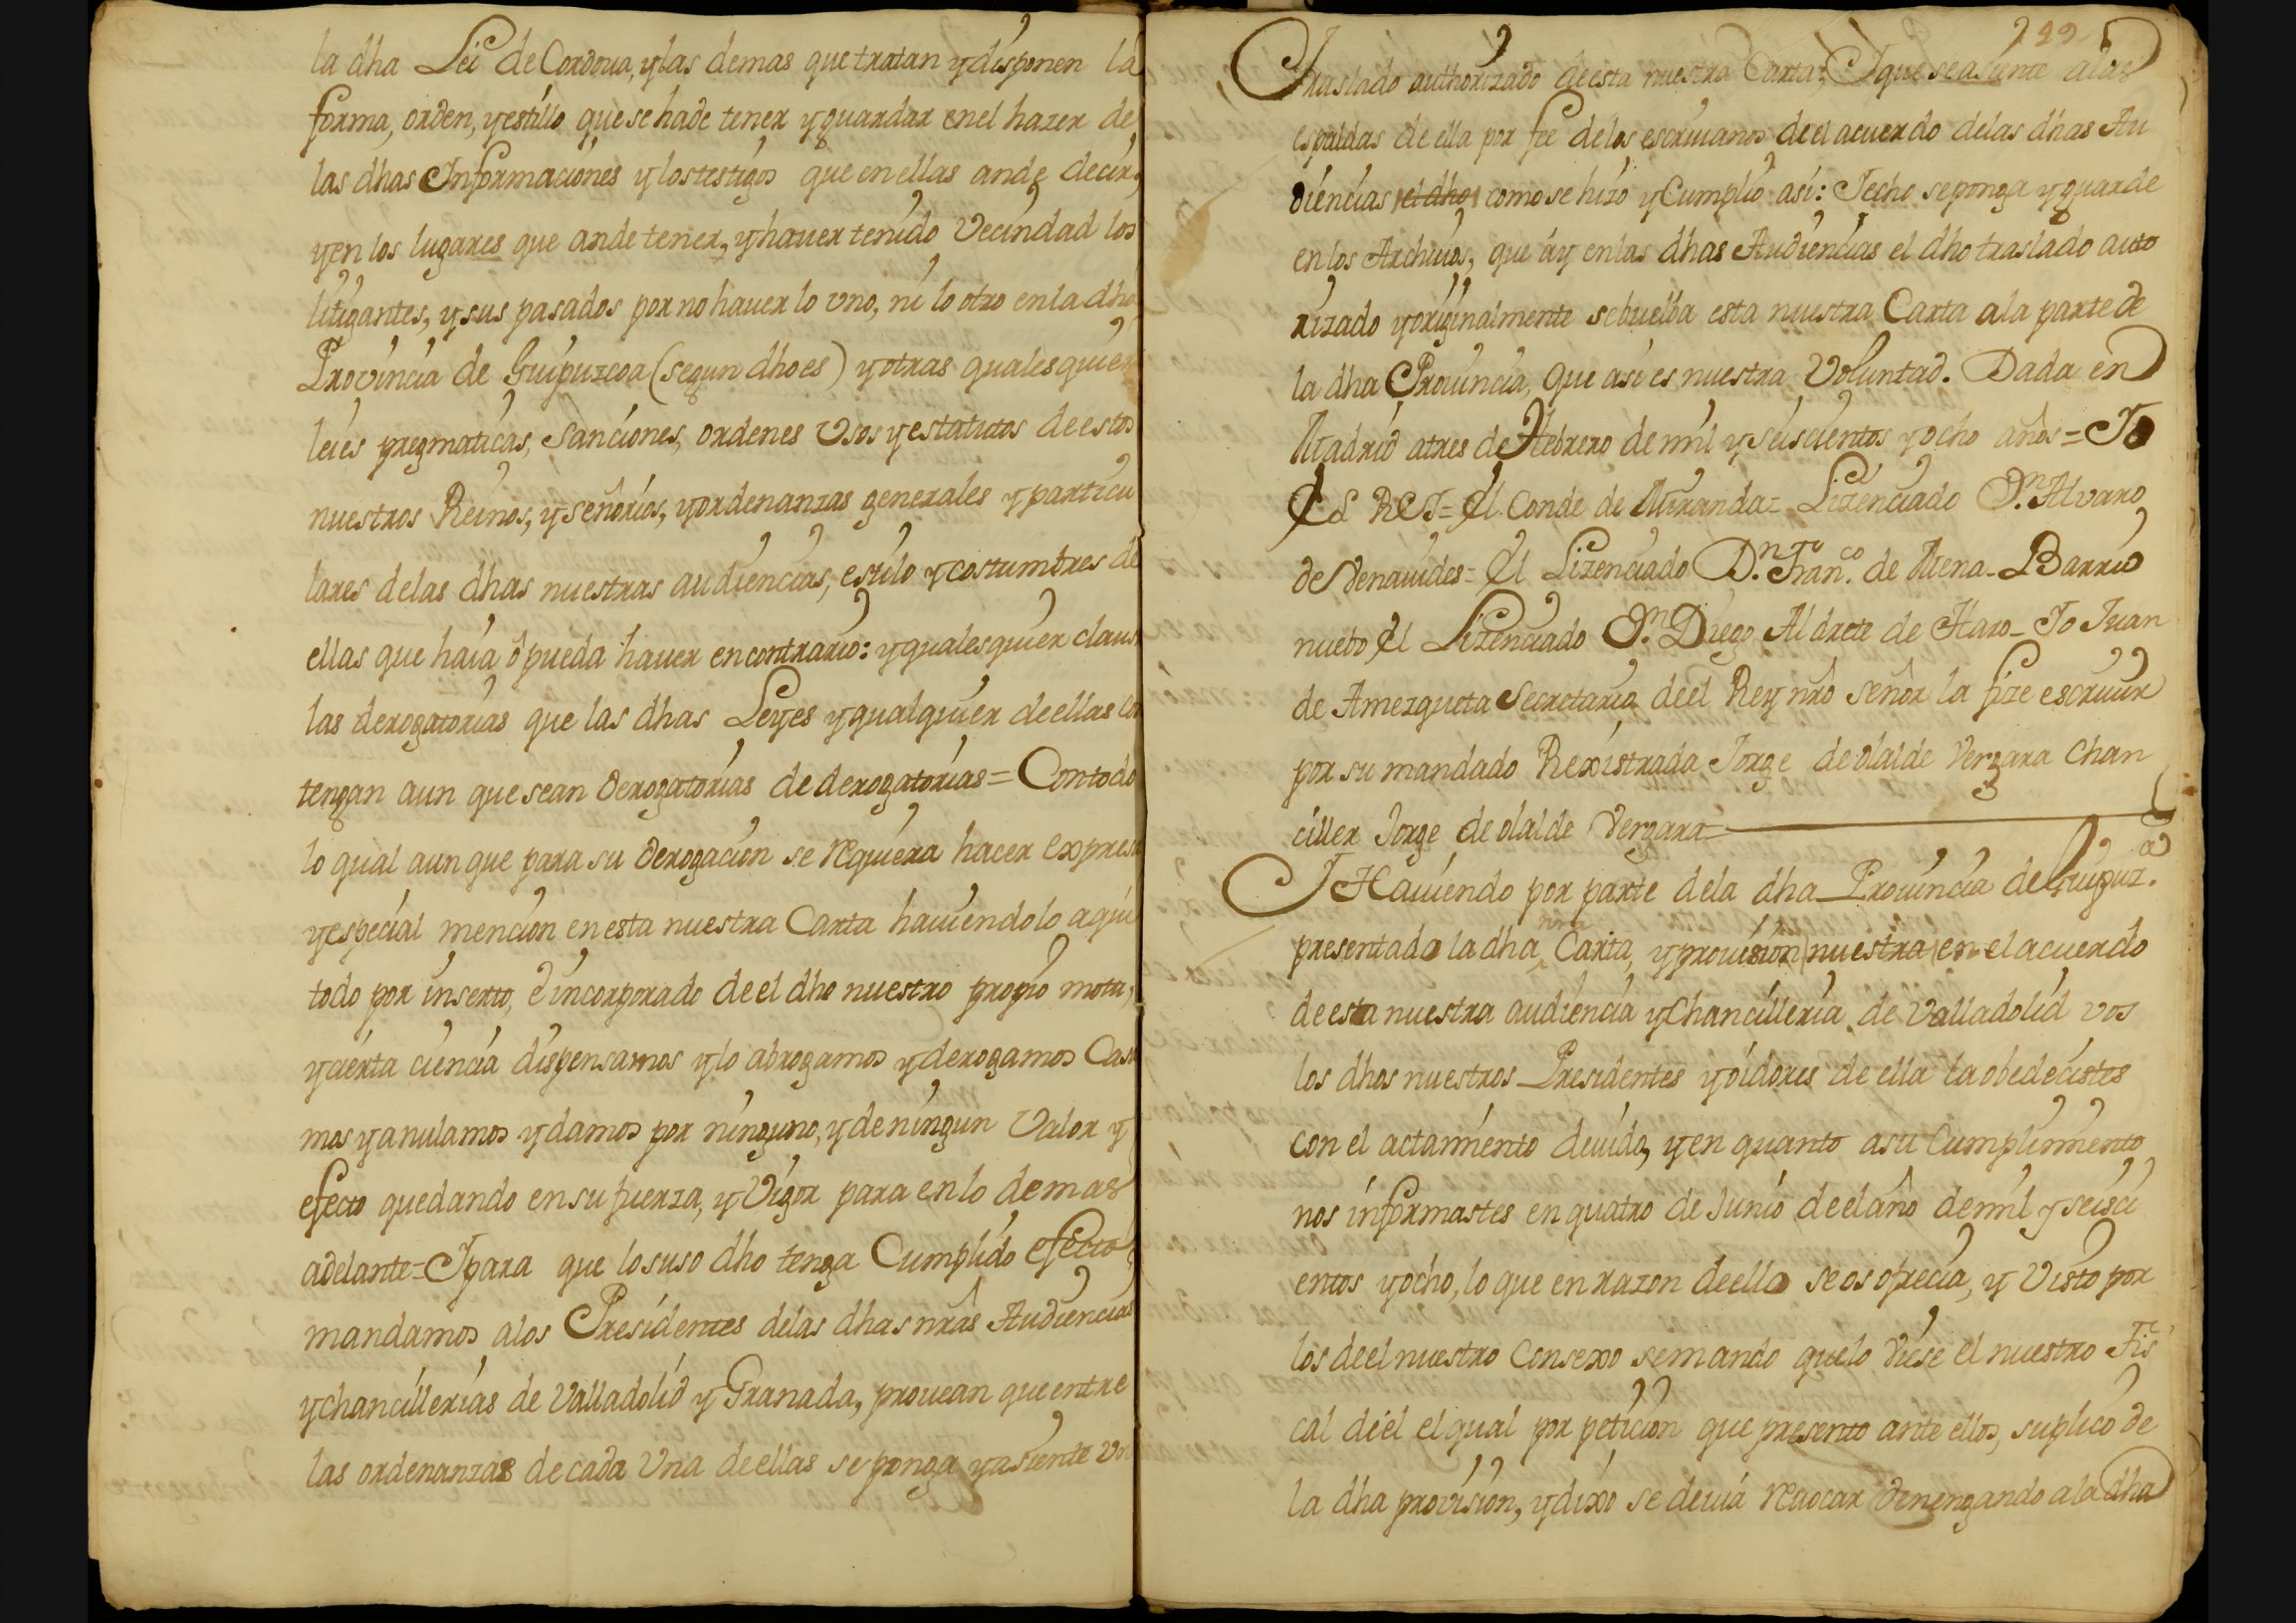 la dha Lei de Cordoua, y las demas que tratan y disponen la
forma, orden, y estillo que se hade tener y guardar en el hazer de
las dhas Informaciones y los testigos que en ellas ande decir,
y en los lugares que ande tener, y hauer tenido Vecindad los
litigantes, y sus pasados por no hauer lo vno, ni lo otro en la dha
Provincia de Guipuzcoa (segun dho es) y otras quales quier
leies pregmaticas, Sanciones, ordenes Vsos y estatutos de estos
nuestros Reinos, y señorios, y ordenanzas generales y particu
lares delas dhas nuestras audiencias, estilo y costumbres de
ellas que haia ô pueda hauer en contrario: y quales quier claus
las derogatorias que las dhas Leyes y qualquier de ellas con
tengan aun que sean derogatorias de derogatorias = Con todo
lo qual aun que para su derogacion se requiera hacer expresa
y especial mencion en esta nuestra Carta hauiendolo aqui
todo por inserto, è incorporado de el dho nuestro propio motu,
y cierta ciencia dispensamos y lo abrogamos y derogamos Casa
mos y anulamos y damos por ninguno, y de ningun Valor y
efecto quedando en su fuerza, y Vigor para en lo demas
adelante = I para que lo suso dho tenga Cumplido efecto
mandamos a los Presidentes delas dhas nrâs Audiencias
y chancillerias de Valladolid y Granada, prouean que entre
las ordenanzas de cada Vna de ellas se ponga y asiente Vn
299
Traslado authorizado de esta nuestra Carta; I que se asiente a las
espaldas de ella por fee de los escriuanos de el acuerdo delas dhas Au
diencias el dho como se hizo y Cumplio asi: I echo se ponga y guarde
en los Archiuos, que ay en las dhas Audiencias el dho traslado auto
rizado y originalmente se buelba esta nuestra Carta a la parte de
la dha Prouincia, que asi es nuestra Voluntad. Dada en
Madrid a tres de Hebrero de mil y seiscientos y ocho años = Io
El REI = El Conde de Miranda = Lizenciado D.n Alvaro
de Venauides = El Lizenciado D.n Fran.co de Mena Barrio
nuebo El Lizenciado D.n Diego Aldrete de Haro Io Iuan
de Amezqueta Secretario de el Rey nrô señor la fize escriuir
por su mandado Rexistrada Jorge de olalde Vergara Chan
ciller Jorge de olalde Vergara
I Hauiendo por parte dela dha Prouincia de Guipuz.a
presentado la dha nrâ Carta, y prouision nuestra en el acuerdo
de esta nuestra audiencia y Chancilleria de Valladolid vos
los dhos nuestros Presidentes y oidores de ella la obedecistes
con el actamiento deuido, y en quanto a su Cumplimiento
nos informastes en quatro de Junio de el año de mil y seisci
entos y ocho, lo que en razon de ella se os ofrecia, y Visto por
los de el nuestro Consexo se mando que lo Viese el nuestro Fis
cal de el el qual por peticion que presento ante ellos, suplico de
la dha provision, y dixo se deuia reuocar denengando a la dha